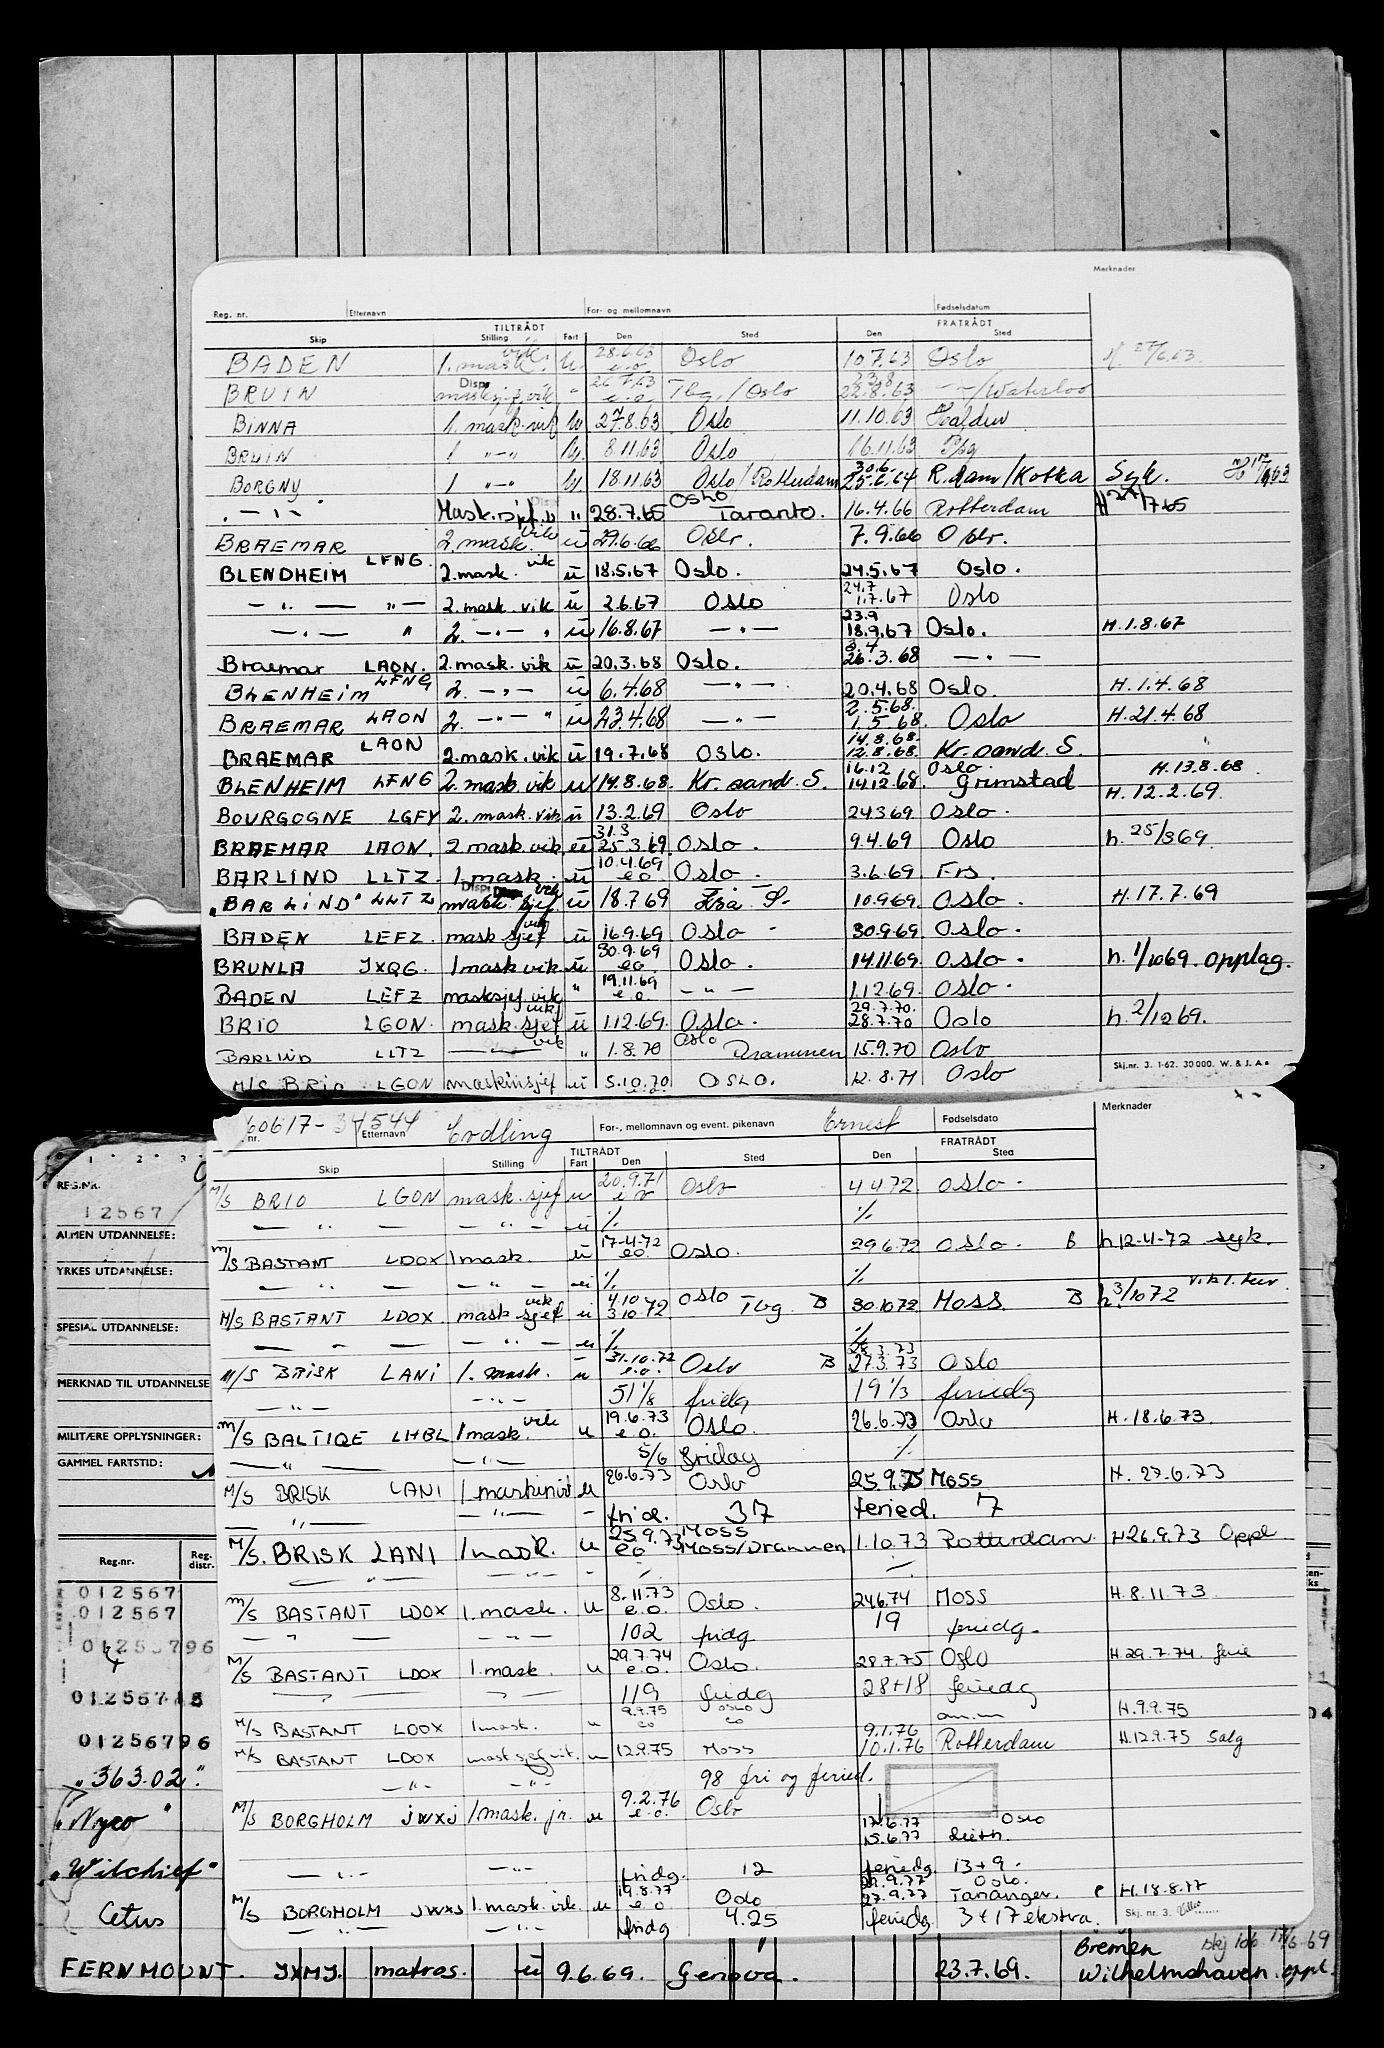 Merknader
Reg. nr. Etternavn For- og mellomnavn Fødselsdatum
TILTRÅDT FRATRÅDT
Skip Stilling Fart Den Sted Den Sted
BADEN 1. mask. vik. u. 28.6.63 e.o. Oslo 10.7.63 Oslo 27/6.63
BRUIN Disp. masksjef. vik " 26.7.63 e.o. Tbg. / Oslo 23.8 22.8.63 /Waterloo
BINNA 1. mask. vik u. 27.8.63 Oslo 11.10.63 Halden
BRUIN 1 -"- u. 8.11.63 Oslo 16.11.63 Tbg
BORGNY 1 -"- u. 18.11.63 Oslo / Rotterdam 30.6. 25.6.64 R.dam/Kotka Syk.
- " - Mask.sjef.v " 28.7.65 Oslo Taranto. 16.4.66 Rotterdam H 27/7.65
BRAEMAR 2. mask. vik u 29.6.66 Oslo. 7.9.66 Oslo.
BLENDHEIM LFNG. 2. mask. vik u 18.5.67 Oslo. 24.5.67 Oslo.
- " - " - 2. mask. vik u 2.6.67 Oslo 24.7 1.7.67 Oslo
- " - " 2. - " - " u 16.8.67 - " - 23.9 18.9.67 Oslo. H. 1.8.67
Braemar LAON. 2. mask. vik u 20.3.68 Oslo. 3.4 26.3.68 - " -
BLENHEIM LFNG 2. - " - u 6.4.68 - " - 20.4.68 Oslo. H. 1.4.68
BRAEMAR LAON 2. - " - " u 23.4.68 - " - 2.5.68. 1.5.68. Oslo H. 21.4.68
BRAEMAR LAON 2. mask. vik u 19.7.68 Oslo. 14.8.68. 12.8.68. Kr. sand. S. "
BLENHEIM LFNG 2. mask. vik u 14.8.68. Kr. sand. S. 16.12 14.12.68. Oslo. Grimstad H. 13.8.68.
BOURGOGNE LGFY 2. mask. vik u 13.2.69 Oslo 24.3.69 Oslo. H. 12.2.69.
BRAEMAR LAON. 2. mask. vik u 31.3 25.3.69. Oslo. 9.4.69 Oslo h. 25/3 69.
BARLIND LLTZ. 1. mask. u 10.4.69 e.o. Oslo. 3.6.69
"BARLIND" LLTZ Disp. mask sjef vik u 18.7.69 10.9.69. Oslo. H. 17.7.69
BADEN LEFZ. mask sjef vik u 16.9.69 Oslo 30.9.69 Oslo.
BRUNLA JXQG. 1 mask vik u 30.9.69 eo Oslo. 14.11.69. Oslo. h. 1/10 69. opplag.
BADEN LEFZ masksjef. vik " 19.11.69 e.o. - " - 1.12.69. Oslo.
BRIO LGON. mask. sjef vik u 1.12.69. Oslo. 29.7.70. 28.7.70 Oslo h. 2/12 69.
BARLIND LLTZ - " - vik " 1.8.70 Oslo Drammen 15.9.70 Oslo
M/S BRIO LGON maskinsjef u 5.10.70 e.o. OSLO. 12.8.71 Oslo Skj.nr. 3. 1-62. 30000. W. & J. A.s
60617-34544
nr. Etternavn Erdling For-, mellomnavn og event. pikenavn Ernest Fødselsdato Merknader
TILTRÅDT FRATRÅDT
Skip Stilling Fart Den Sted Den Sted
M/S BRIO LGON mask. sjef u 20.9.71 e o Oslo 4.4.72 Oslo.
- " - - " - u ./. ./.
M/S BASTANT LDOX 1 mask. u 17-4-72 eo. Oslo. 29.6.72 Oslo. B h. 12-4-72 syk.
- " - - " - u ./. ./.
M/S BASTANT LDOX. mask sjef vik u 4.10 3.10.72. Oslo Tbg. B 30.10.72 Moss B h. 3/10 72
- " - - " - u ./. ./.
M/S BRISK LANI 1. mask. u 31.10.72 e.o. Oslo B 28.3.73 27.3.73 Oslo
- " - - " - 51 1/8 fridg 19 1/3 feriedg
M/S BALTIQE LHBL 1 mask. vik u 19.6.73 e.o. Oslo. 26.6.73 Oslo H. 18.6.73.
- " - - " - 5/6 fridag ./.
M/S BRISK LANI 1 maskinist u 26.6.73 Oslo 25.9.75 Moss H. 27.6.73
- " - - " - frid. 37 feried. 7
M/S. BRISK LANI 1 mask. u 25.9.73 eo Moss Moss/Drammen 1.10.73 Rotterdam H 26.9.73 Oppl
- " - - " - ./. ./.
M/S BASTANT LDOX 1. mask. u 8.11.73 e.o. Oslo. 24.6.74 Moss H. 8.11.73.
- " - - " - 102 fridg 19 feriedg.
M/S BASTANT LDOX 1. mask. u 29.7.74 e.o. Oslo. 28.7.75 Oslo H. 29.7.74. ferie
- " - - " - 119 fridg 28+18 feriedg
M/S BASTANT LDOX 1 mask. u 9.9.75 eo Oslo eo am.m H. 9.9.75
M/S BASTANT LDOX mask sjef vik. u 12.9.75 Moss 9.1.76 10.1.76 Rotterdam H. 12.9.75 Salg
- " - - " - 98 fri og feried.
M/S BORGHOLM JWXJ 1. mask. jr. u 9.2.76 e.o. Oslo 17.6.77 15.6.77 Oslo
- " - - " - fridg. 12 feriedg 13+9.
M/S BORGHOLM JWXJ 1. mask. vik. u 19.8.77 e o Oslo 29.9.77 27.9.77 Oslo. Tananger. H. 18.8.77
- " - - " - fridg 4.25 feriedg 3 + 17 ekstra. Skj. nr. 3.
REG.NR. 12567
ALMEN UTDANNELSE:
YRKES UTDANNELSE:
SPESIAL UTDANNELSE:
MERKNAD TIL UTDANNELSE
MILITÆRE OPPLYSNINGER:
GAMMEL FARTSTID:
Reg.-nr. Reg. distr.
012567
012567
01256796
01256796
"363.02".
"Nyco"
"Wilchief"
Cetus
FERNMOUNT. JXMJ. matros. u 9.6.69. Genova. 23.7.69. Bremen Wilhelmshaven. oppl.